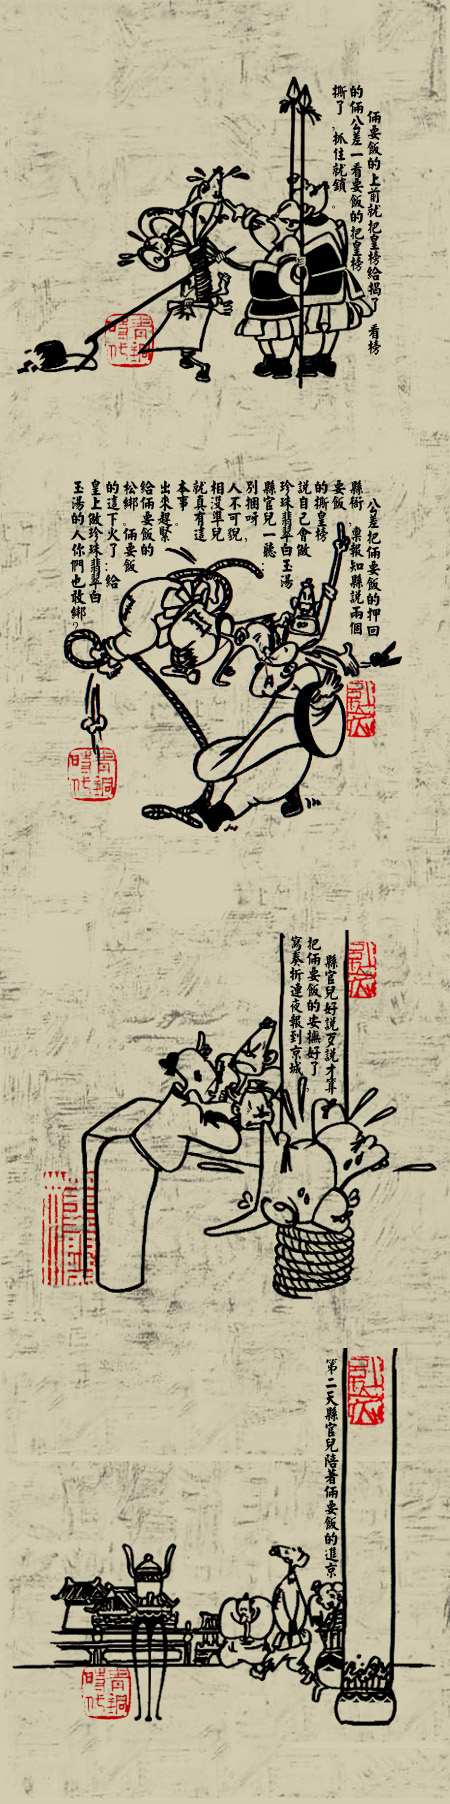 倆要飯的上前就把皇榜給揭了 看榜
的倆公差一看要飯的把皇榜
撕了，抓住就鎖。
青銅
時代
公差把倆要飯的押回
縣衙，稟報知縣説兩個
要飯
的撕皇榜
説自己會做
珍珠翡翠白玉湯
縣官兒一聽：
別捆呀，
人不可貌
相没準兒
就真有這
本事。
出來趕緊
給倆要飯的
松綁。倆要飯
的這下火了：給
皇上做珍珠翡翠白
玉湯的人你們也敢綁？
青銅
時代
縣官兒好説歹説才算
把倆要飯的安撫好了
寫奏折連夜報到京城。
第二天縣官兒陪著倆要飯的進京
青銅
時代